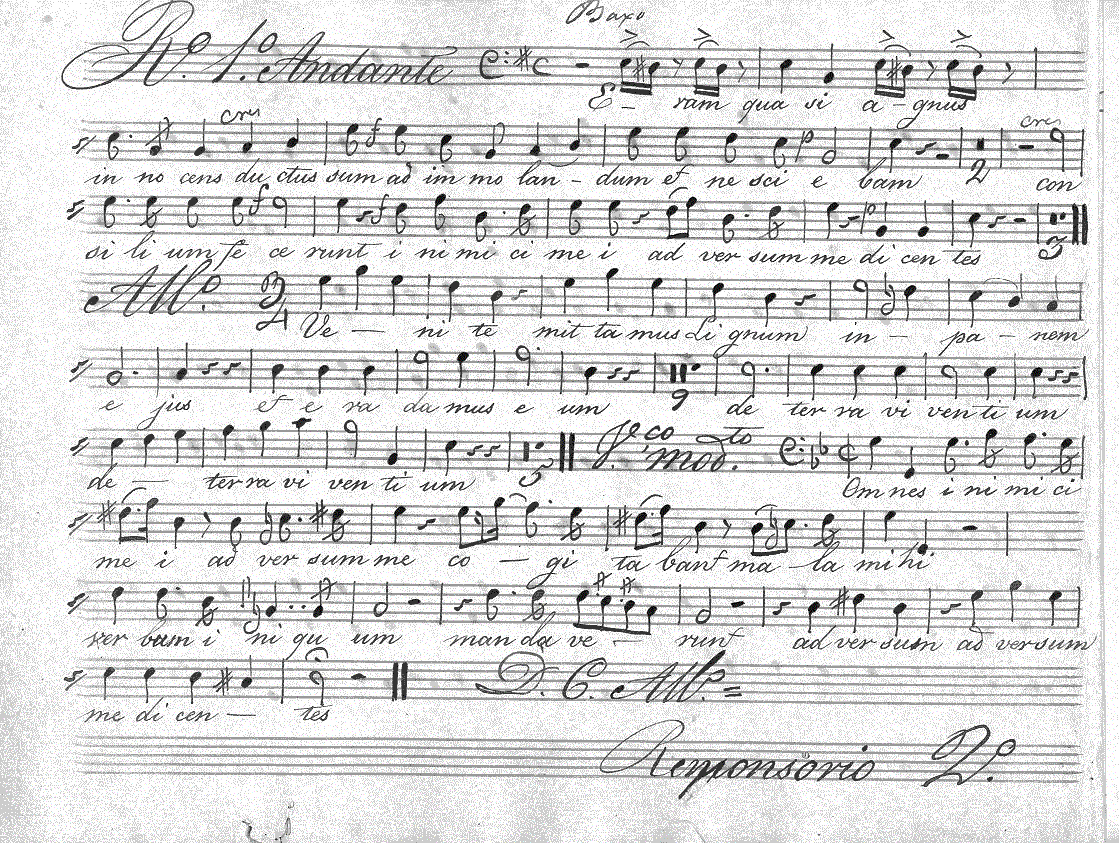 Baxo
Rº. 1.º Andante
E - ram qua si a - gnus
cres cres
in no cens du ctus sum ad im mo lan - dum et ne sci e bam con
2
si li um fe ce runt i ni mi ci me i ad ver sum me di cen tes
3
All.º 3/4
Ve — ni te mit ta mus Li gnum in - pa - nem
e jus et e ra da mus e um de ter ra vi ven ti um
9
de — ter ra vi ven ti um Om nes i ni mi ci
5 mod.to
me i ad ver sum me co — gi ta bant ma - la mi hi
ver bum i ni qu um man da ve - runt ad ver sum ad ver sum
D. C. All.º =
me di cen — tes
Remponsorio 2.º